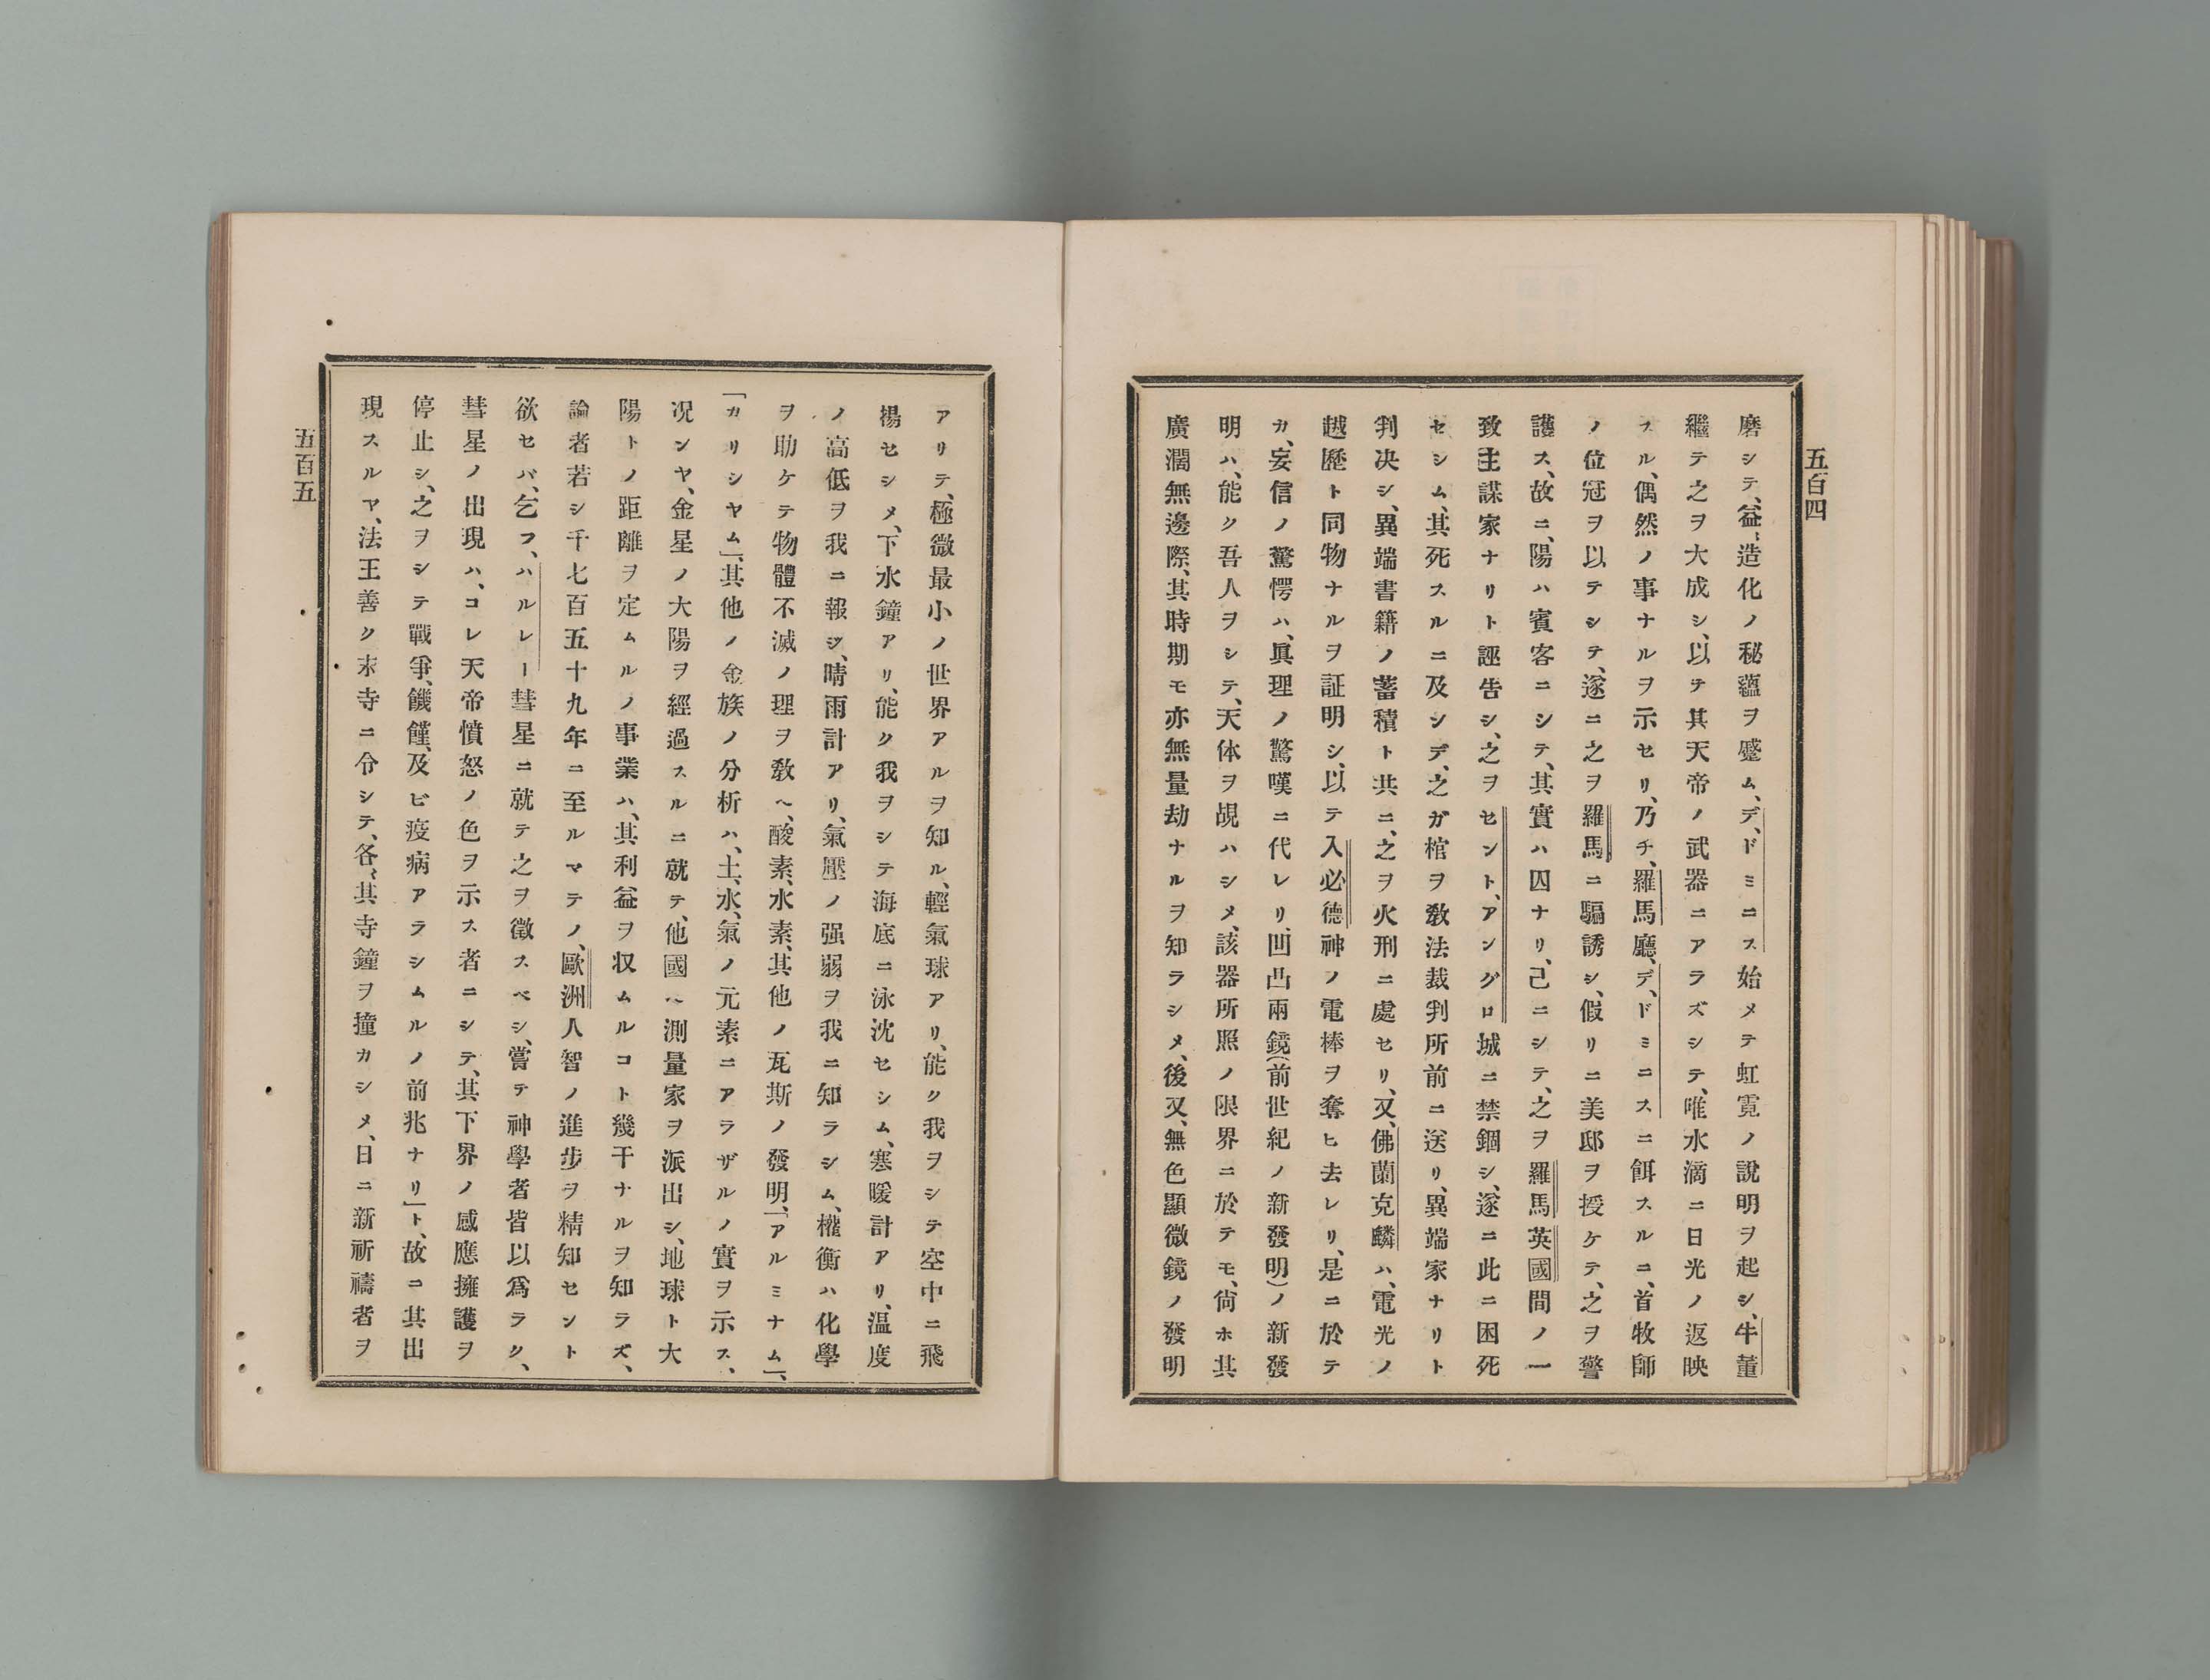 五百四
磨シテ、益、造化ノ秘蘊ヲ蹙ム、デ、ドミニス始メテ虹霓ノ說明ヲ起シ、牛董
繼テ之ヲ大成シ、以テ其天帝ノ武器ニアラズシテ、唯水滴ニ日光ノ返映
スル、偶然ノ事ナルヲ示セリ、乃チ、羅馬廳、デ、ドミニスニ餌スルニ、首牧師
ノ位冠ヲ以テシテ、遂ニ之ヲ羅馬ニ騙誘シ、假リニ美邸ヲ授ケテ、之ヲ警
護ス、故ニ、陽ハ賓客ニシテ、其實ハ囚ナリ、己ニシテ、之ヲ羅馬英國間ノ一
致主謀家ナリト誣告シ、之ヲセント、アングロ城ニ禁錮シ、遂ニ此ニ困死
セシム、其死スルニ及シデ、之ガ棺ヲ敎法裁判所前ニ送リ、異端家ナリト
判决シ、異端書籍ノ蓄積ト共ニ、之ヲ火刑ニ處セリ、又、佛蘭克麟ハ、電光ノ
越歷ト同物ナルヲ証明シ、以テ入必德神ノ電棒ヲ奪ヒ去レリ、是ニ於テ
カ、妄信ノ驚愕ハ、眞理ノ驚嘆ニ代レリ、凹凸兩鏡(前世紀ノ新發明)ノ新發
明ハ、能ク吾人ヲシテ、天体ヲ覘ハシメ、該器所照ノ限界ニ於テモ、尙ホ其
廣濶無邊際、其時期モ亦無量劫ナルヲ知ラシメ、後又、無色顯微鏡ノ發明
アリテ、極微最小ノ世界アルヲ知ル、輕氣球アリ、能ク我ヲシテ空中ニ飛
揚セシメ、下水鐘アリ、能ク我ヲシテ海底ニ泳沈セシム、寒暖計アリ、温度
ノ高低ヲ我ニ報シ、晴雨計アリ、氣壓ノ强弱ヲ我ニ知ラシム、權衡ハ化學
ヲ助ケテ物體不滅ノ理ヲ敎ヘ、酸素、水素、其他ノ瓦斯ノ發明、「アルミナム」、
「カリシヤム」、其他ノ金族ノ分析ハ、土、水、氣ノ元素ニアラザルノ實ヲ示ス、
况ンヤ、金星ノ大陽ヲ經過スルニ就テ、他國ヘ測量家ヲ派出シ、地球ト大
陽トノ距離ヲ定ムルノ事業ハ、其利益ヲ収ムルコト幾干ナルヲ知ラズ、
論者若シ千七百五十九年ニ至ルマテノ、歐洲人智ノ進步ヲ精知セント
欲セバ、乞フ、ハルレー彗星ニ就テ之ヲ徵スベシ、嘗テ神學者皆以爲ラク、
彗星ノ出現ハ、コレ天帝憤怒ノ色ヲ示ス者ニシテ、其下界ノ感應擁護ヲ
停止シ、之ヲシテ戰爭、饑饉、及ビ疫病アラシムルノ前兆ナリ」ト、故ニ其出
現スルヤ、法王善ク末寺ニ令シテ、各、其寺鐘ヲ撞カシメ、日ニ新祈禱者ヲ
五百五